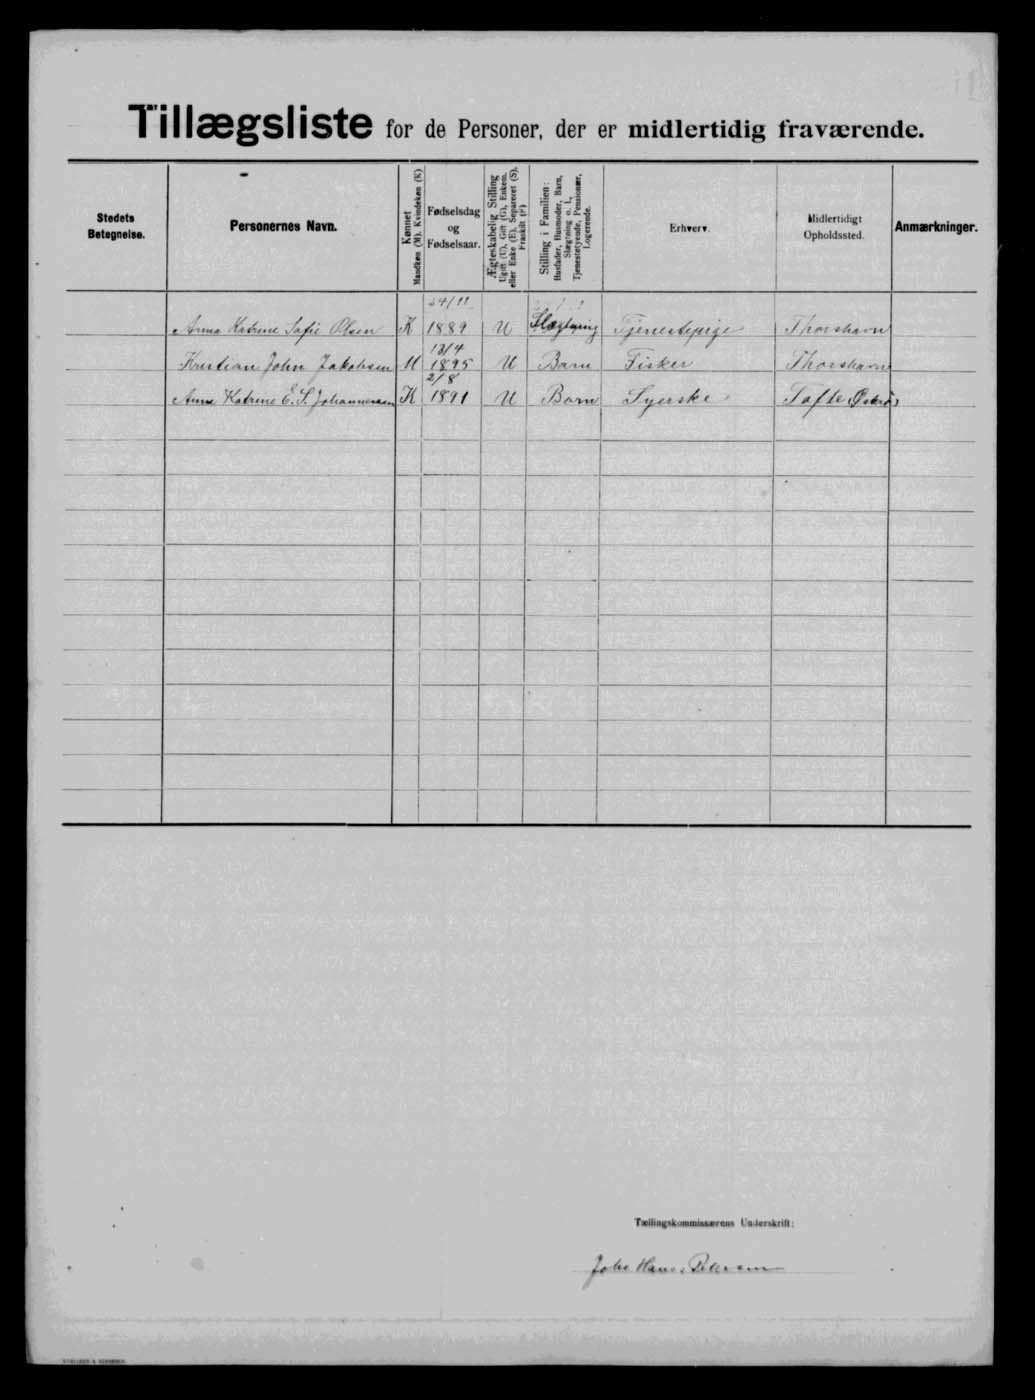 Tillægsliste for de Personer, der er midlertidig fraværende.
Stedets Betegnelse.
Personernes Navn.
Kønnet
Mandkøn (M). Kvindekøn (K)
Fødselsdag
og
Fødselsaar.
Ægteskabelig Stilling
Ugift (U), Gift (G), Enkem.
eller Enke (E), Separeret (S),
Fraskilt (F)
Stilling i Familien:
Husfader, Husmoder, Barn,
Slægtning o. l.,
Tjenestetyende, Pensionær,
Logerende.
Erhverv.
Midlertidigt
Opholdssted.
Anmærkninger.
24/11
Anna Katrine Sofie Olsen K 1889 U Slægtning Tjenestepige Thorshavn
13/4
Kristian John Jakobsen M 1895 U Barn Fisker Thorshavn
2/8
Anna Katrine E. S. Johannesen K 1891 U Barn Syerske Tofte (Østerø)
Tællingskommissærens Underskrift:
Hans Petersen